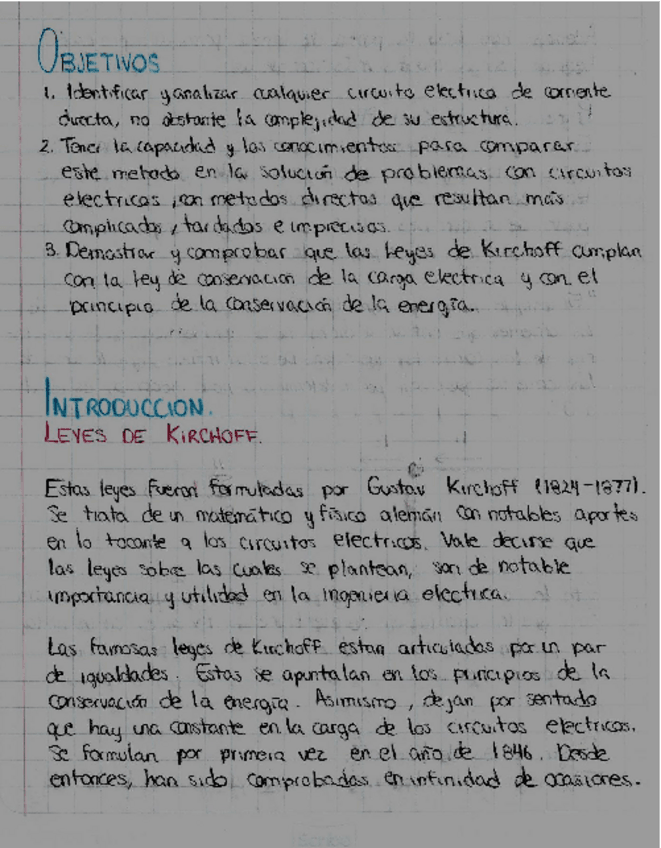 OBJETIVOS
1. Identificar y analizar cualquier circuito electrico de corriente
directa, no obstante la complejidad de su estructura.
2. Tener la capacidad y los conocimientos para comparar
este metodo en la solución de problemas con circuitos
electricos, con metodos directos que resultan más
complicados, tardados e imprecisos.
3. Demostrar y comprobar que las Leyes de Kirchoff cumplan
con la ley de conservación de la carga electrica y con el
principio de la conservación de la energía.
INTRODUCCION.
LEYES DE KIRCHOFF.
Estas leyes fueron formuladas por Gustav Kirchoff (1824-1877).
Se trata de un matemático y físico alemán con notables aportes
en lo tocante a los circuitos electricos. Vale decirse que
las leyes sobre las cuales se plantean, son de notable
importancia y utilidad en la ingenieria electrica.
Las famosas leyes de Kirchoff estan articuladas por un par
de igualdades. Estas se apuntalan en los principios de la
conservación de la energía. Asimismo, dejan por sentado
que hay una constante en la carga de los circuitos electricos.
Se formulan por primera vez en el año de 1846. Desde
entonces, han sido comprobadas en infinidad de ocasiones.